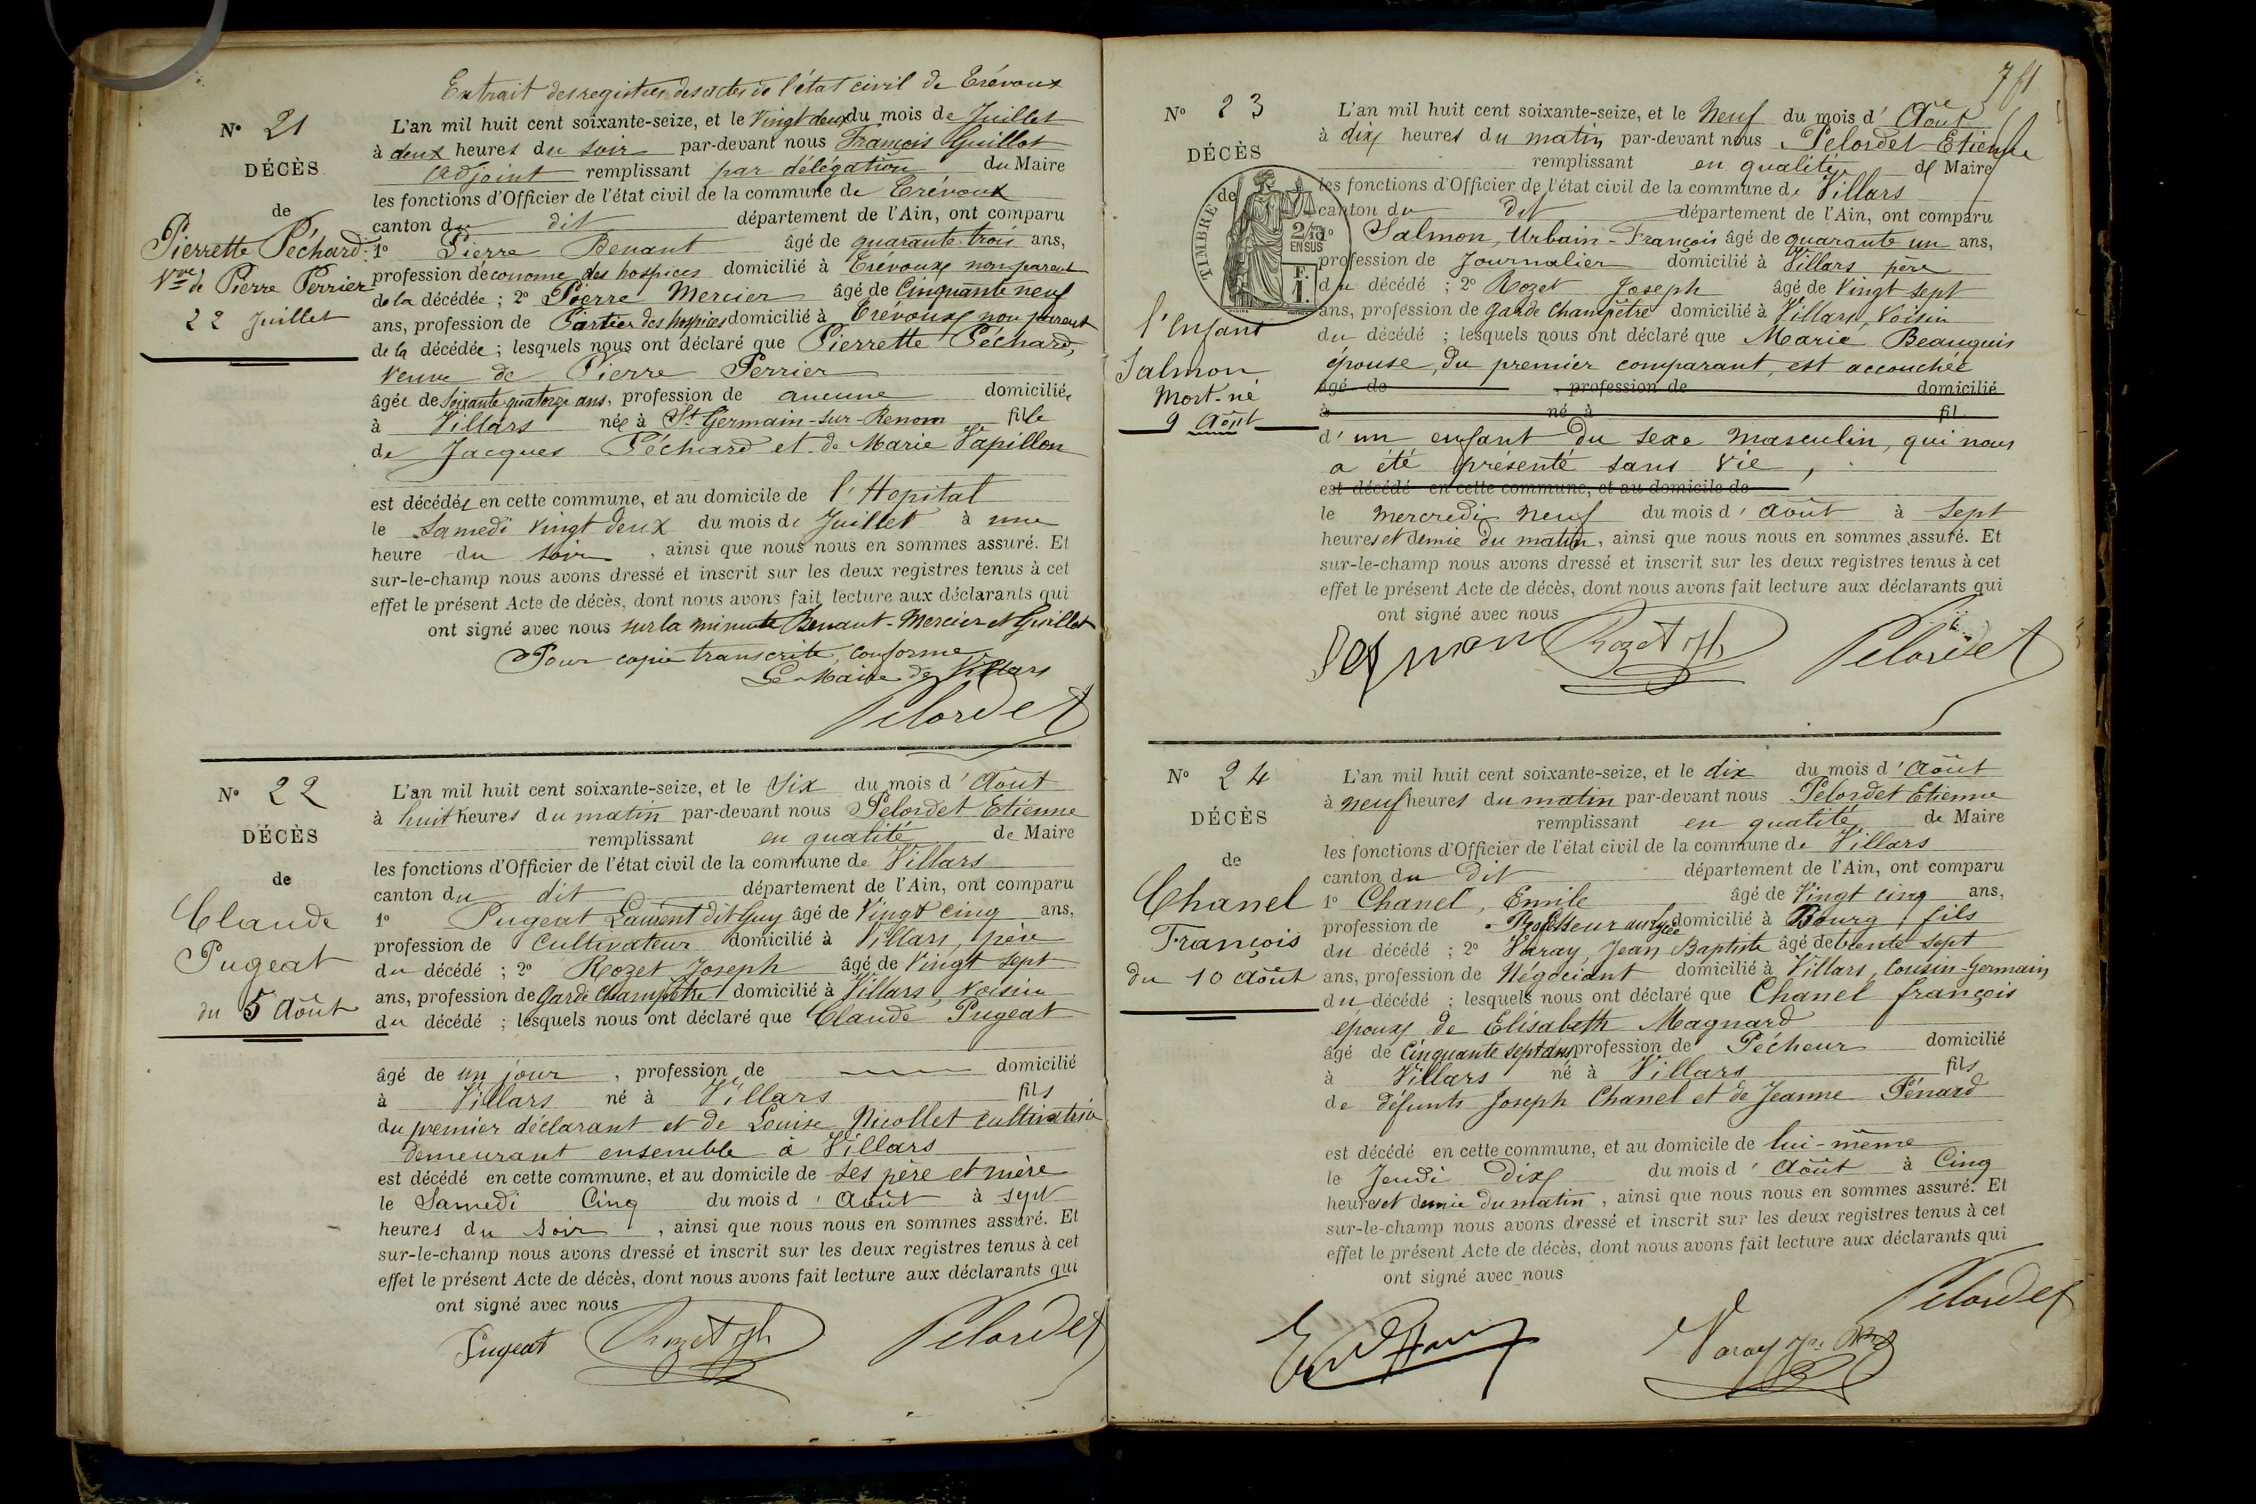 Extrait des registres des actes de l'état civil de Trévoux
N° 21
DÉCÈS
de
Pierrette Péchard
Vve de Pierre Perrier
22 Juillet
L'an mil huit cent soixante-seize, et le Vingt deux du mois de Juillet
à deux heures du soir par-devant nous François Guillot
adjoint remplissant par délégation du Maire
les fonctions d'Officier de l'état civil de la commune de Trévoux
canton du dit département de l'Ain, ont comparu
1° Pierre Benant âgé de quarante trois ans,
profession de econome des hospices domicilié à Trévoux non parent
de la décédée ; 2° Pierre Mercier âgé de Cinquante neuf
ans, profession de Portier des hospices domicilié à Trévoux non parent
de la décédée ; lesquels nous ont déclaré que Pierrette Péchard,
veuve de Pierre Perrier
âgée de Soixante quatorze ans, profession de aucune domiciliée
à Villars née à St Germain-sur-Renom fille
de Jacques Péchard et de Marie Papillon
est décédée en cette commune, et au domicile de l'Hopital
le Samedi vingt deux du mois de Juillet à une
heure du soir, ainsi que nous nous en sommes assuré. Et
sur-le-champ nous avons dressé et inscrit sur les deux registres tenus à cet
effet le présent Acte de décès, dont nous avons fait lecture aux déclarants qui
ont signé avec nous sur la minute Benant - Mercier et Guillot
Pour copie transcrite conforme
Le Maire de Villars
Pelordet
N° 22
DÉCÈS
de
Claude
Pugeat
du 5 Août
L'an mil huit cent soixante-seize, et le Six du mois d'Août
à huit heures du matin par-devant nous Pelordet Etienne
remplissant en qualité de Maire
les fonctions d'Officier de l'état civil de la commune de Villars
canton du dit département de l'Ain, ont comparu
1° Pugeat Laurent dit Guy âgé de Vingt cinq ans,
profession de Cultivateur domicilié à Villars, père
du décédé ; 2° Rozet Joseph âgé de Vingt sept
ans, profession de Garde champêtre domicilié à Villars, Voisin
du décédé ; lesquels nous ont déclaré que Claude Pugeat
âgé de un jour, profession de domicilié
à Villars né à Villars fils
du premier déclarant et de Louise Nicollet cultivatrice
demeurant ensemble à Villars
est décédé en cette commune, et au domicile de ses père et mère
le Samedi Cinq du mois d'Août à sept
heures du soir, ainsi que nous nous en sommes assuré. Et
sur-le-champ nous avons dressé et inscrit sur les deux registres tenus à cet
effet le présent Acte de décès, dont nous avons fait lecture aux déclarants qui
ont signé avec nous
Pugeat Rozet Jh Pelordet
N° 23
DÉCÈS
de
TIMBRE
2/10
EN SUS
F.
1.
l'Enfant
Salmon
Mort-né
9 Août
L'an mil huit cent soixante-seize, et le Neuf du mois d'Août
à dix heures du matin par-devant nous Pelordet Etienne
remplissant en qualité de Maire
les fonctions d'Officier de l'état civil de la commune de Villars
canton du dit département de l'Ain, ont comparu
1° Salmon, Urbain-François âgé de quarante un ans,
profession de Journalier domicilié à Villars père
du décédé ; 2° Rozet Joseph âgé de Vingt sept
ans, profession de garde champêtre domicilié à Villars, Voisin
du décédé ; lesquels nous ont déclaré que Marie Beauguis
épouse, du premier comparant, est accouchée
âgé de , profession de domicilié
à né à fil
d'un enfant du sexe masculin, qui nous
a été présenté sans vie,
est décédé en cette commune, et au domicile de
le mercredi neuf du mois d'août à sept
heures et demie du matin, ainsi que nous nous en sommes assuré. Et
sur-le-champ nous avons dressé et inscrit sur les deux registres tenus à cet
effet le présent Acte de décès, dont nous avons fait lecture aux déclarants qui
ont signé avec nous
Salmon Rozet Jh Pelordet
N° 24
DÉCÈS
de
Chanel
François
du 10 août
L'an mil huit cent soixante-seize, et le dix du mois d'août
à neuf heures du matin par-devant nous Pelordet Etienne
remplissant en qualité de Maire
les fonctions d'Officier de l'état civil de la commune de Villars
canton du dit département de l'Ain, ont comparu
1° Chanel, Emile âgé de Vingt cinq ans,
profession de Professeur au lycée domicilié à Bourg, fils
du décédé ; 2° Varay, Jean Baptiste âgé de trente sept
ans, profession de Négociant domicilié à Villars, Cousin-Germain
du décédé ; lesquels nous ont déclaré que Chanel françois
époux de Elisabeth Magnard
âgé de Cinquante sept ans profession de Pécheur domicilié
à Villars né à Villars fils
de défunts Joseph Chanel et de Jeanne Pénard
est décédé en cette commune, et au domicile de lui-même
le Jeudi Dix du mois d'Août à Cinq
heures et demie du matin, ainsi que nous nous en sommes assuré. Et
sur-le-champ nous avons dressé et inscrit sur les deux registres tenus à cet
effet le présent Acte de décès, dont nous avons fait lecture aux déclarants qui
ont signé avec nous
Pelordet
Varay